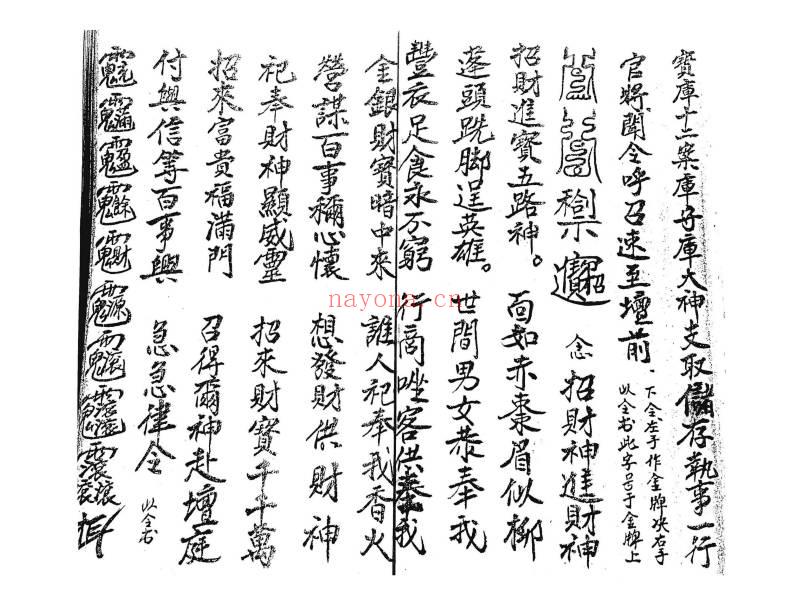 寶庫十二案庫子庫大神支取儲存執事一行
官將聞令呼召速至壇前
下令左手作金牌决右手
以令書此字号于金牌上
念 招財神進財神
招財進寶五路神。 面如赤棗眉似柳
蓬頭跣脚逞英雄。 世間男女恭奉我
豐衣足食永不窮 行商坐客供奉我
金銀財寶暗中來 誰人祀奉我香火
營謀百事稱心懷 想發財供財神
祀奉財神顯威靈 招來財寶千千萬
招來富貴福滿門 召得爾神赴壇庭
付與信等百事興 急急律令 以令書
nayona.cn